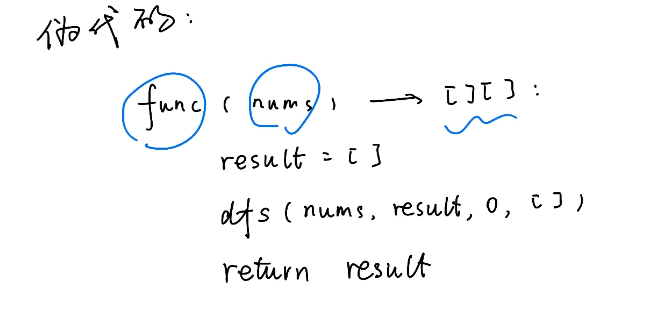 伪代码:
func(nums) → [][]:
result = []
dfs(nums, result, 0, [])
return result